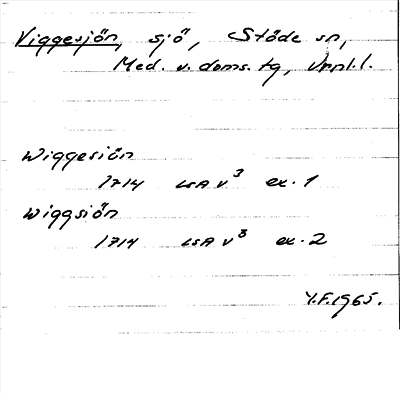 Viggesjön, sjö, Stöde sn,
Med. v. doms. tg, Vrnl. l.
Wiggesiön
1714 LSA V³ ex. 1
Wiggsiön
1714 LSA V³ ex. 2
Y.F. 1965.